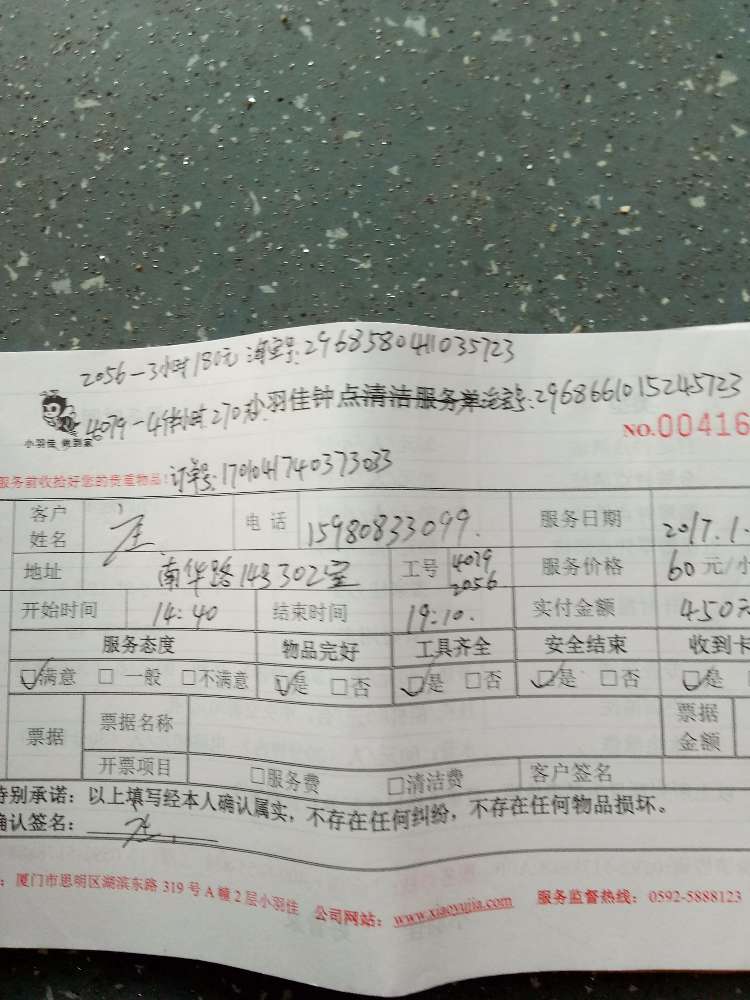 2056-3小时180元 淘宝号:2968580411035723
4079-4半小时270 小羽佳钟点清洁服务单 宝号:2968661015245723
小羽佳 做到家
NO.00416
服务前收拾好您的贵重物品! 订单号:1701041740373033
客户姓名 电话 15980833099. 服务日期 2017.1.
地址 南华路143 302室 工号 4079 2056 服务价格 60元/小
开始时间 14:40 结束时间 19:10. 实付金额 450元
服务态度 物品完好 工具齐全 安全结束 收到卡
☑满意 □一般 □不满意 ☑是 □否 ☑是 □否 ☑是 □否 ☑是
票据 票据名称 票据金额
开票项目 □服务费 □清洁费 客户签名
特别承诺:以上填写经本人确认属实,不存在任何纠纷,不存在任何物品损坏。
确认签名:
:厦门市思明区湖滨东路 319 号 A 幢 2 层小羽佳 公司网站:www.xiaoyujia.com 服务监督热线:0592-5888123